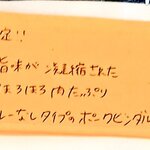 定!!
旨味が凝縮された
ほろほろ肉たっぷり
レーなしタイプのポークビンダル